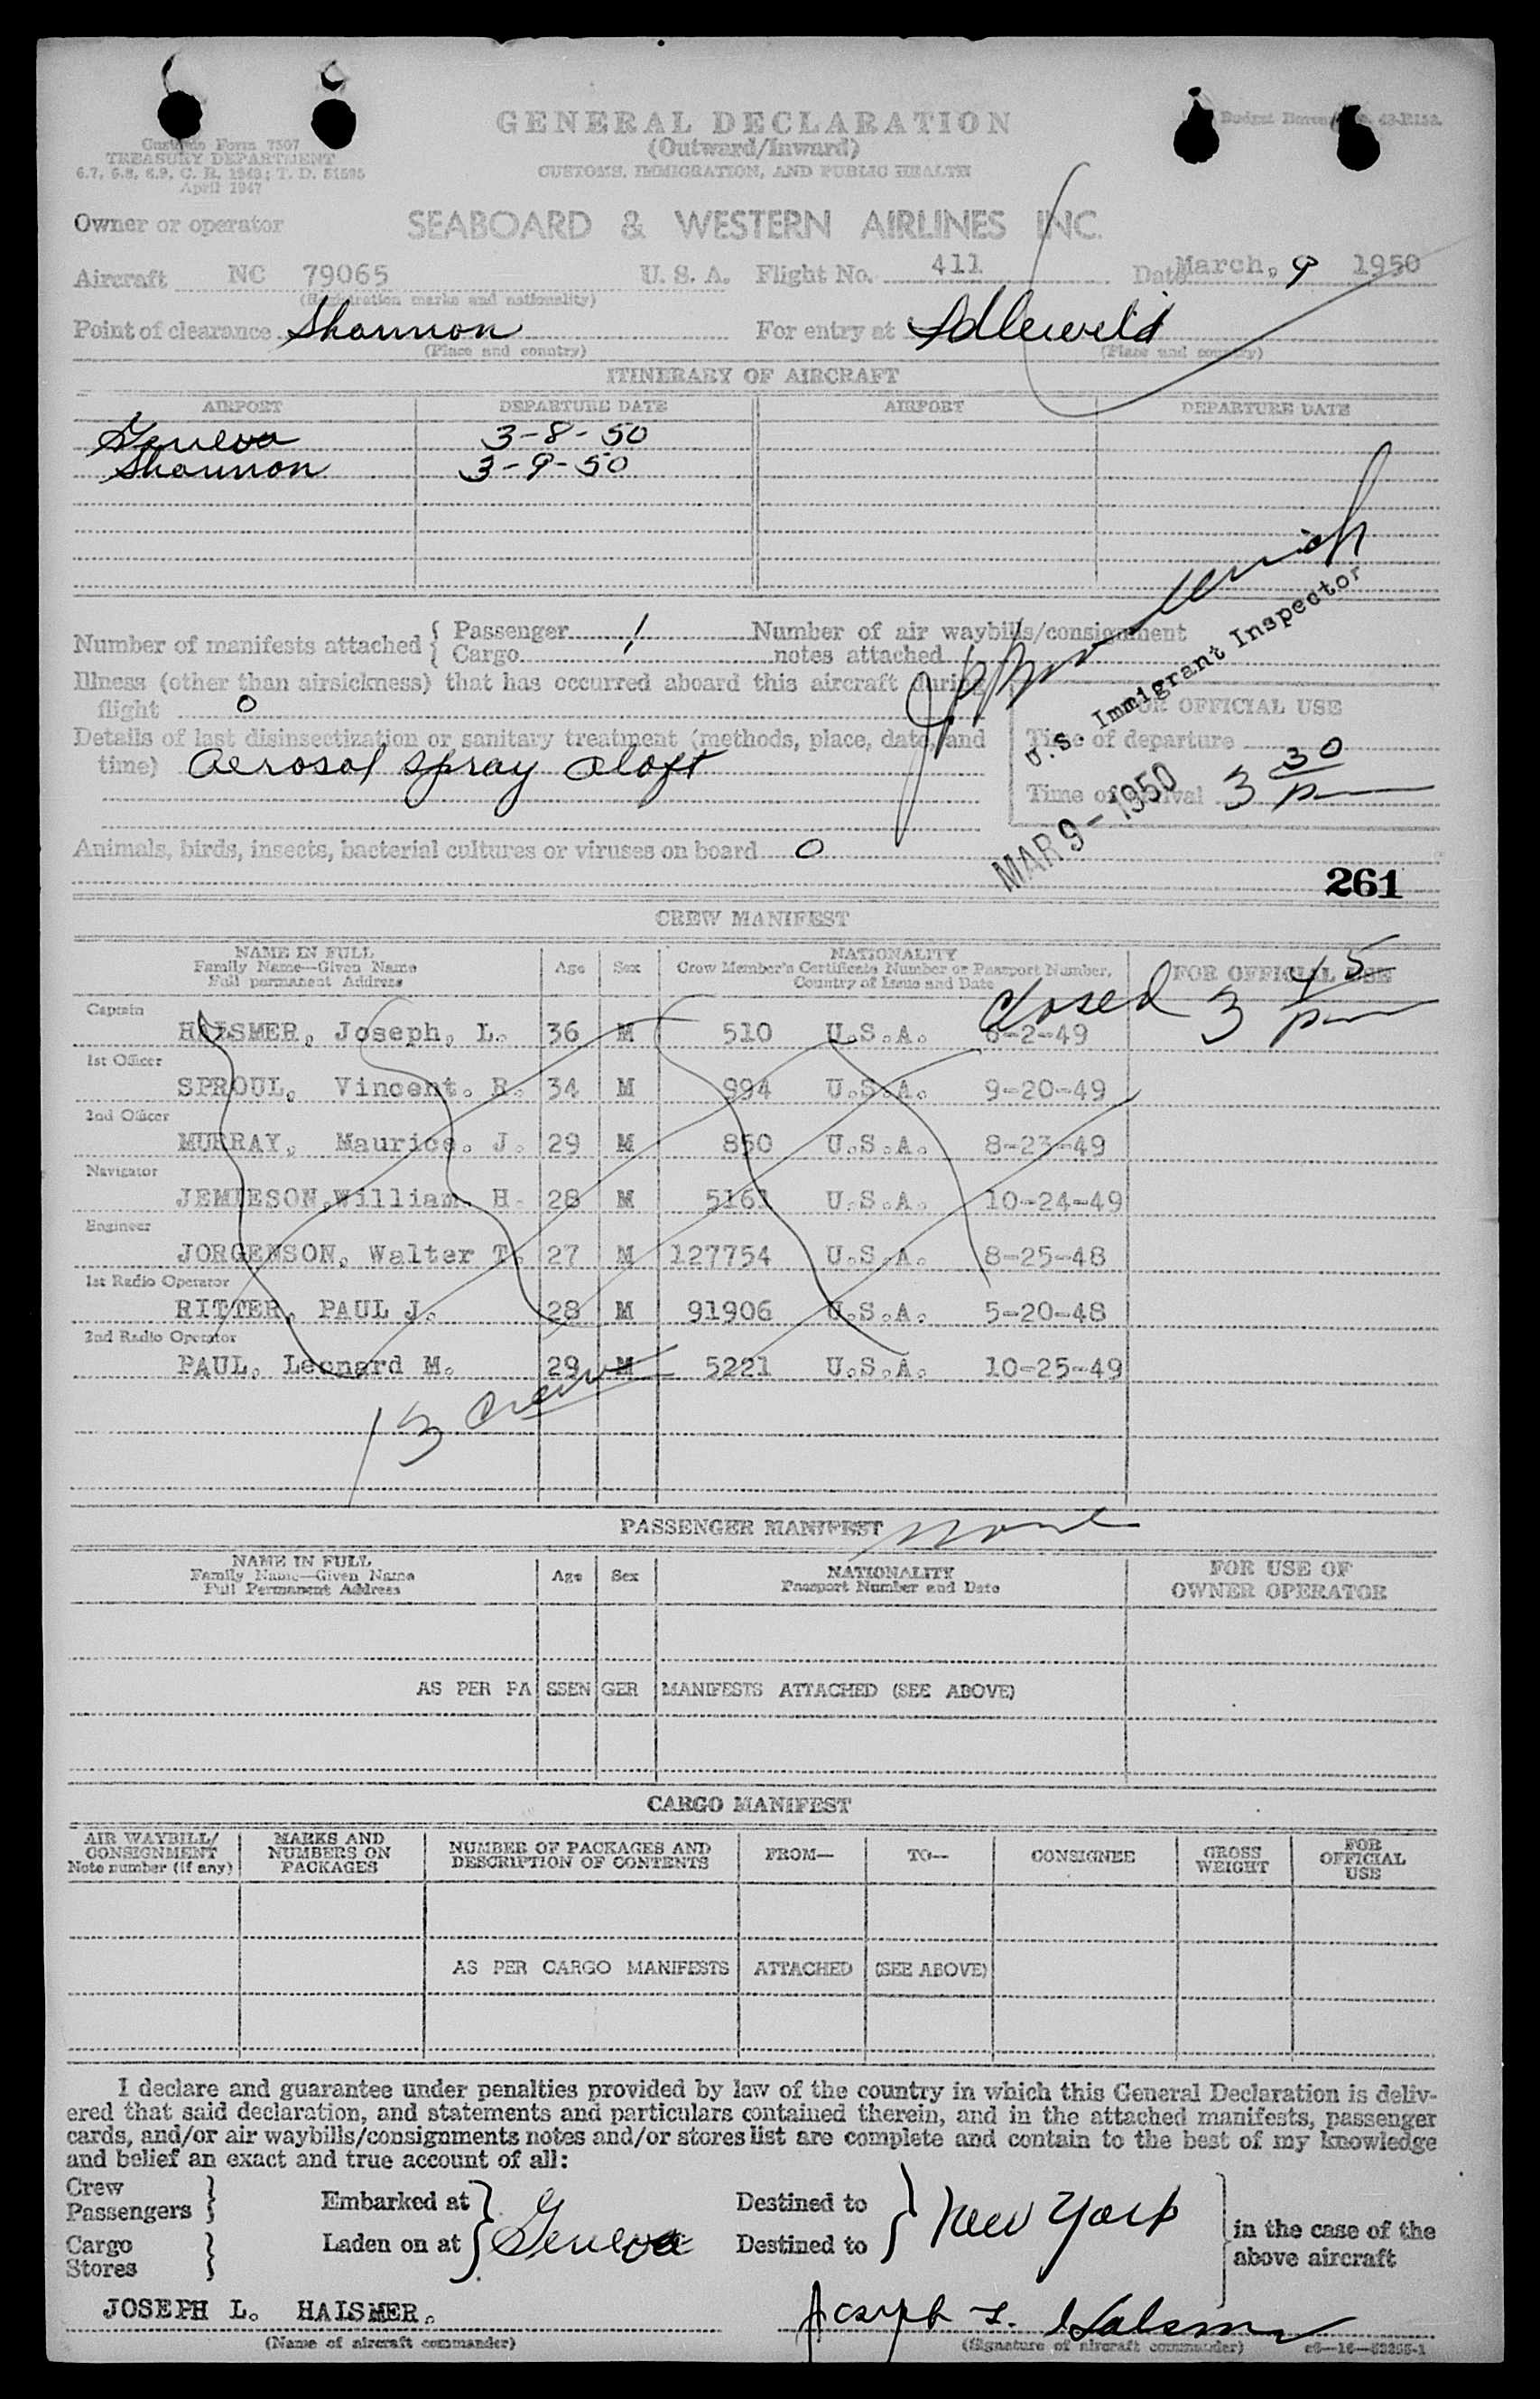 GENERAL DECLARATION
(Outward/Inward)
CUSTOMS, IMMIGRATION, AND PUBLIC HEALTH
Customs Form 7507
TREASURY DEPARTMENT
April 1947
Owner or operator SEABOARD & WESTERN AIRLINES INC.
Aircraft NC 79065 U. S. A. Flight No. 411 Date March, 9 1950
(Registration marks and nationality)
Point of clearance Shannon For entry at Idlewild
(Place and country) (Place and country)
ITINERARY OF AIRCRAFT
AIRPORT DEPARTURE DATE AIRPORT DEPARTURE DATE
Geneva 3-8-50
Shannon 3-9-50
Number of manifests attached { Passenger 1 Number of air waybills/consignment
Cargo 1 notes attached
Illness (other than airsickness) that has occurred aboard this aircraft during
flight 0
FOR OFFICIAL USE
Details of last disinsectization or sanitary treatment (methods, place, date, and
time) Aerosol spray aloft
Time of departure
Time of arrival 3 30 pm
U.S. Immigrant Inspector
MAR 9 - 1950
Animals, birds, insects, bacterial cultures or viruses on board 0
261
CREW MANIFEST
NAME IN FULL
Family Name—Given Name
Full permanent Address
Age Sex
NATIONALITY
Crew Member's Certificate Number or Passport Number,
Country of Issue and Date
FOR OFFICIAL USE
closed 3 45 pm
Captain
HALSMER, Joseph, L. 36 M 510 U.S.A. 8-2-49
1st Officer
SPROUL, Vincent. R. 34 M 994 U.S.A. 9-20-49
2nd Officer
MURRAY, Maurice. J. 29 M 850 U.S.A. 8-23-49
Navigator
JEMIESON,William. H. 28 M 5161 U.S.A. 10-24-49
Engineer
JORGENSON, Walter T. 27 M 127754 U.S.A. 8-25-48
1st Radio Operator
RITTER, PAUL J. 28 M 91906 U.S.A. 5-20-48
2nd Radio Operator
PAUL, Leonard M. 29 M 5221 U.S.A. 10-25-49
13 crew
PASSENGER MANIFEST none
NAME IN FULL
Family Name—Given Name
Full Permanent Address
Age Sex
NATIONALITY
Passport Number and Date
FOR USE OF
OWNER OPERATOR
AS PER PASSENGER MANIFESTS ATTACHED (SEE ABOVE)
CARGO MANIFEST
AIR WAYBILL/
CONSIGNMENT
Note number (if any)
MARKS AND
NUMBERS ON
PACKAGES
NUMBER OF PACKAGES AND
DESCRIPTION OF CONTENTS
FROM—
TO—
CONSIGNEE
GROSS
WEIGHT
FOR
OFFICIAL
USE
AS PER CARGO MANIFESTS ATTACHED (SEE ABOVE)
I declare and guarantee under penalties provided by law of the country in which this General Declaration is deliv-
ered that said declaration, and statements and particulars contained therein, and in the attached manifests, passenger
cards, and/or air waybills/consignments notes and/or stores list are complete and contain to the best of my knowledge
and belief an exact and true account of all:
Crew
Passengers } Embarked at } Geneva Destined to } New York
Cargo
Stores } Laden on at Destined to
in the case of the
above aircraft
JOSEPH L. HALSMER. Joseph L. Halsmer
(Name of aircraft commander) (Signature of aircraft commander)